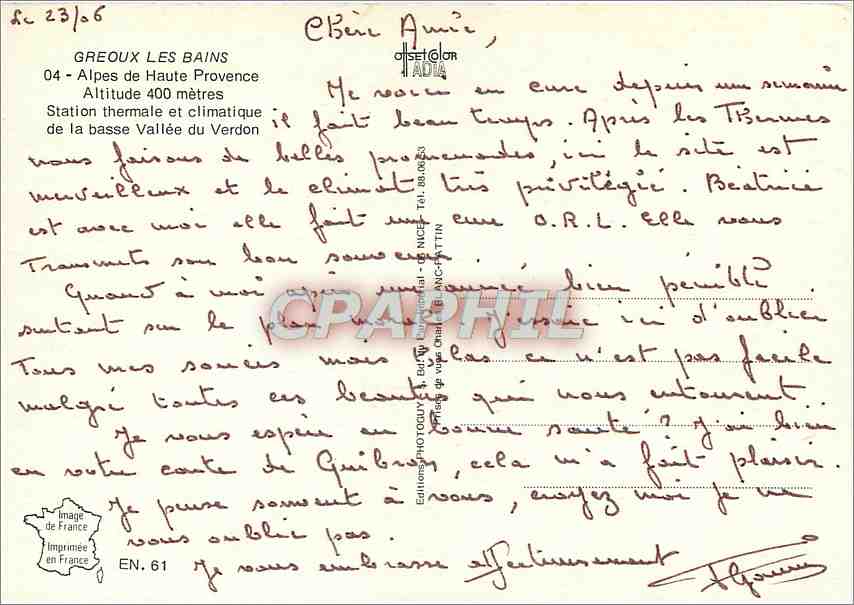 Le 23/06
Chère Amie,
GREOUX LES BAINS
04 - Alpes de Haute Provence
Altitude 400 mètres
Station thermale et climatique
de la basse Vallée du Verdon
OFFSETCOLOR
IADIA
Me voici en cure depuis une semaine
il fait beau temps. Après les Thermes
nous faisons de belles promenades, ici le site est
merveilleux et le climat très privilégié. Béatrice
est avec moi elle fait une cure O.R.L. Elle vous
transmets son bon souvenir.
Quand à moi après une année bien pénible
surtout sur le plan moral j'essaie ici d'oublier
Tous mes soucis mais hélas ce n'est pas facile
malgré toutes ces beautés qui nous entourent.
Je vous espère en bonne santé? J'ai bien
eu votre carte de Quibron, cela m'a fait plaisir.
Je pense souvent à vous, croyez moi je ne
vous oublie pas.
Je vous embrasse affectueusement
Editions PHOTOGUY - Bd du Parc Impérial - 06 NICE - Tél. 88.06.53
Prises de vues Charles BLANC-PATTIN
CPAPHIL
Image
de France
Imprimée
en France
EN. 61